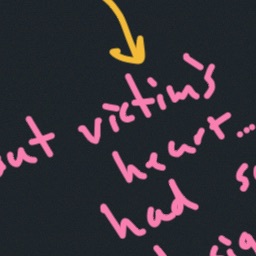 but victim's
heart...
had